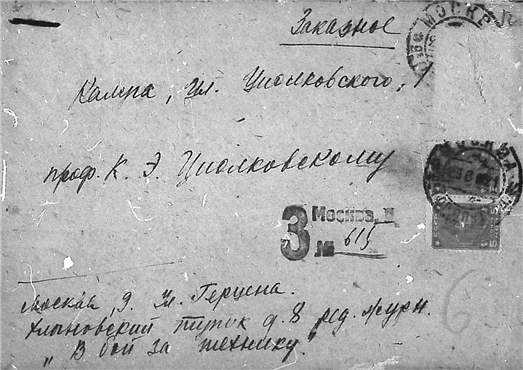 Заказное
МОСК
Калуга, Ул. Циолковского, 1
проф. К. Э. Циолковскому
З Москва,
№ 615
Москва, 9. Ул. Герцена.
Хлыновский тупик д. 8 ред. журн.
"В бой за технику"